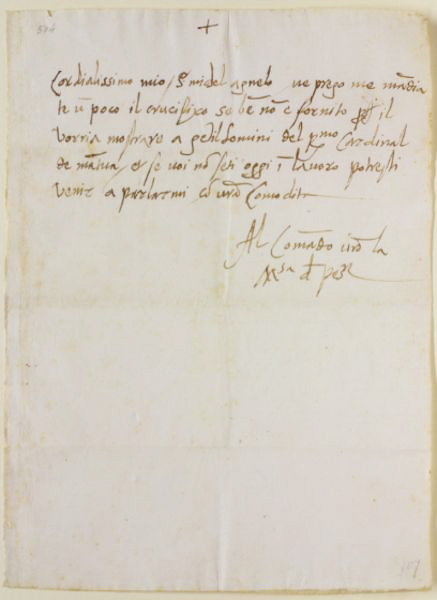 504
+
Cordialissimo mio S. michel agnelo ve prego me mādia
te ū poco il crucifixo se bē nō e fornito il
vorria mostrare a gētilhomini del r.mo Cardinal
de mātua, et se voi nō seti oggi ī lavoro potresti
venir a parlarmi cō vrā Comodità
Al Comādo vrō la
M.sa d pesca
107